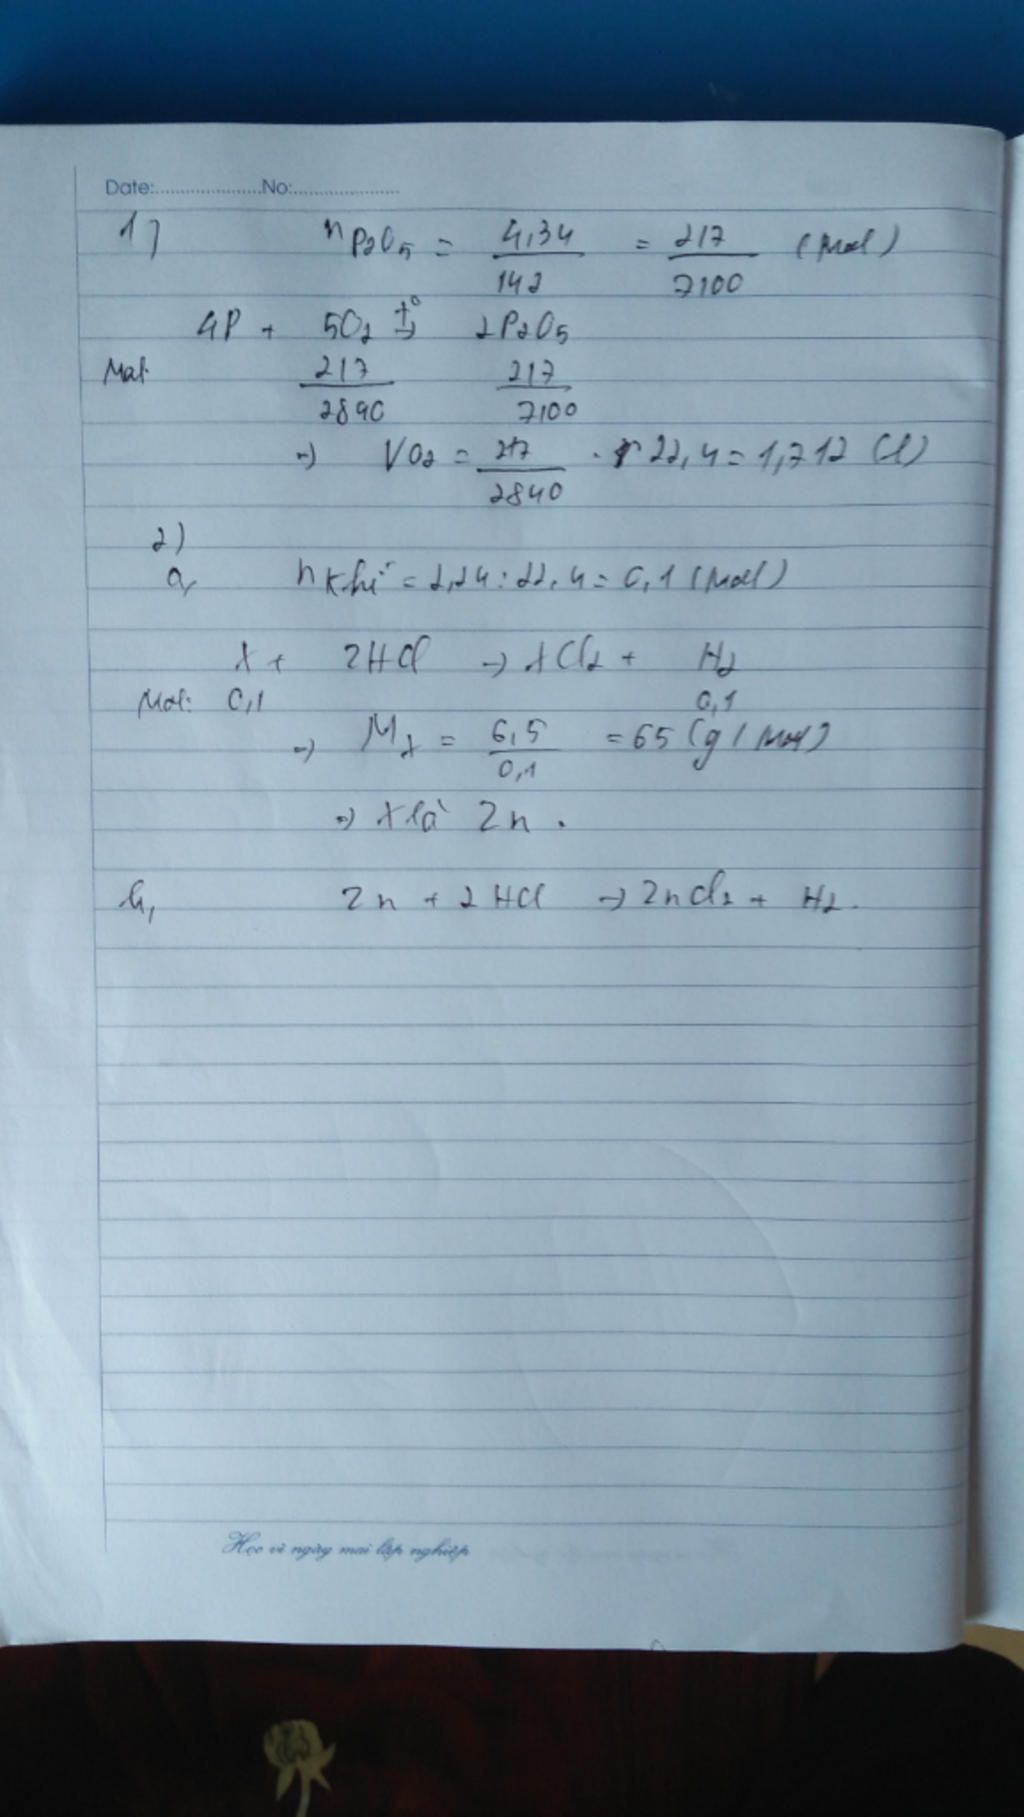 Date:.....................No:.....................
1) nP2O5 = 4,34/142 = 217/7100 (mol)
4P + 5O2 t°→ 2P2O5
Mol: 217/2840 217/7100
=) VO2 = 217/2840 . 22,4 = 1,712 (l)
2)
a, nkhí = 2,24 : 22,4 = 0,1 (mol)
X + 2HCl → XCl2 + H2
Mol: 0,1 0,1
=) MX = 6,5/0,1 = 65 (g/mol)
=) X là Zn .
b, Zn + 2HCl → ZnCl2 + H2.
Học vì ngày mai lập nghiệp